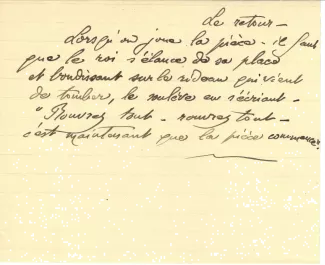 Le retour -
Lorsqu'on joue la pièce - il faut
que le roi s'élance de sa place
et bondissant sur le rideau qui vient
de tomber, le soulève en s'écriant -
"Rouvrez tout - rouvrez tout -
c'est maintenant que la pièce commence.